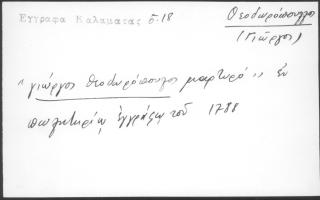 Έγγραφα Καλαματας σ.18
Θεοδωρόπουλος
(Γιώργος)
"γιώργος θεοδωρόπουλος μαρτυρό" ἐν
πωλητηρίῳ ἐγγράφῳ τοῦ 1788